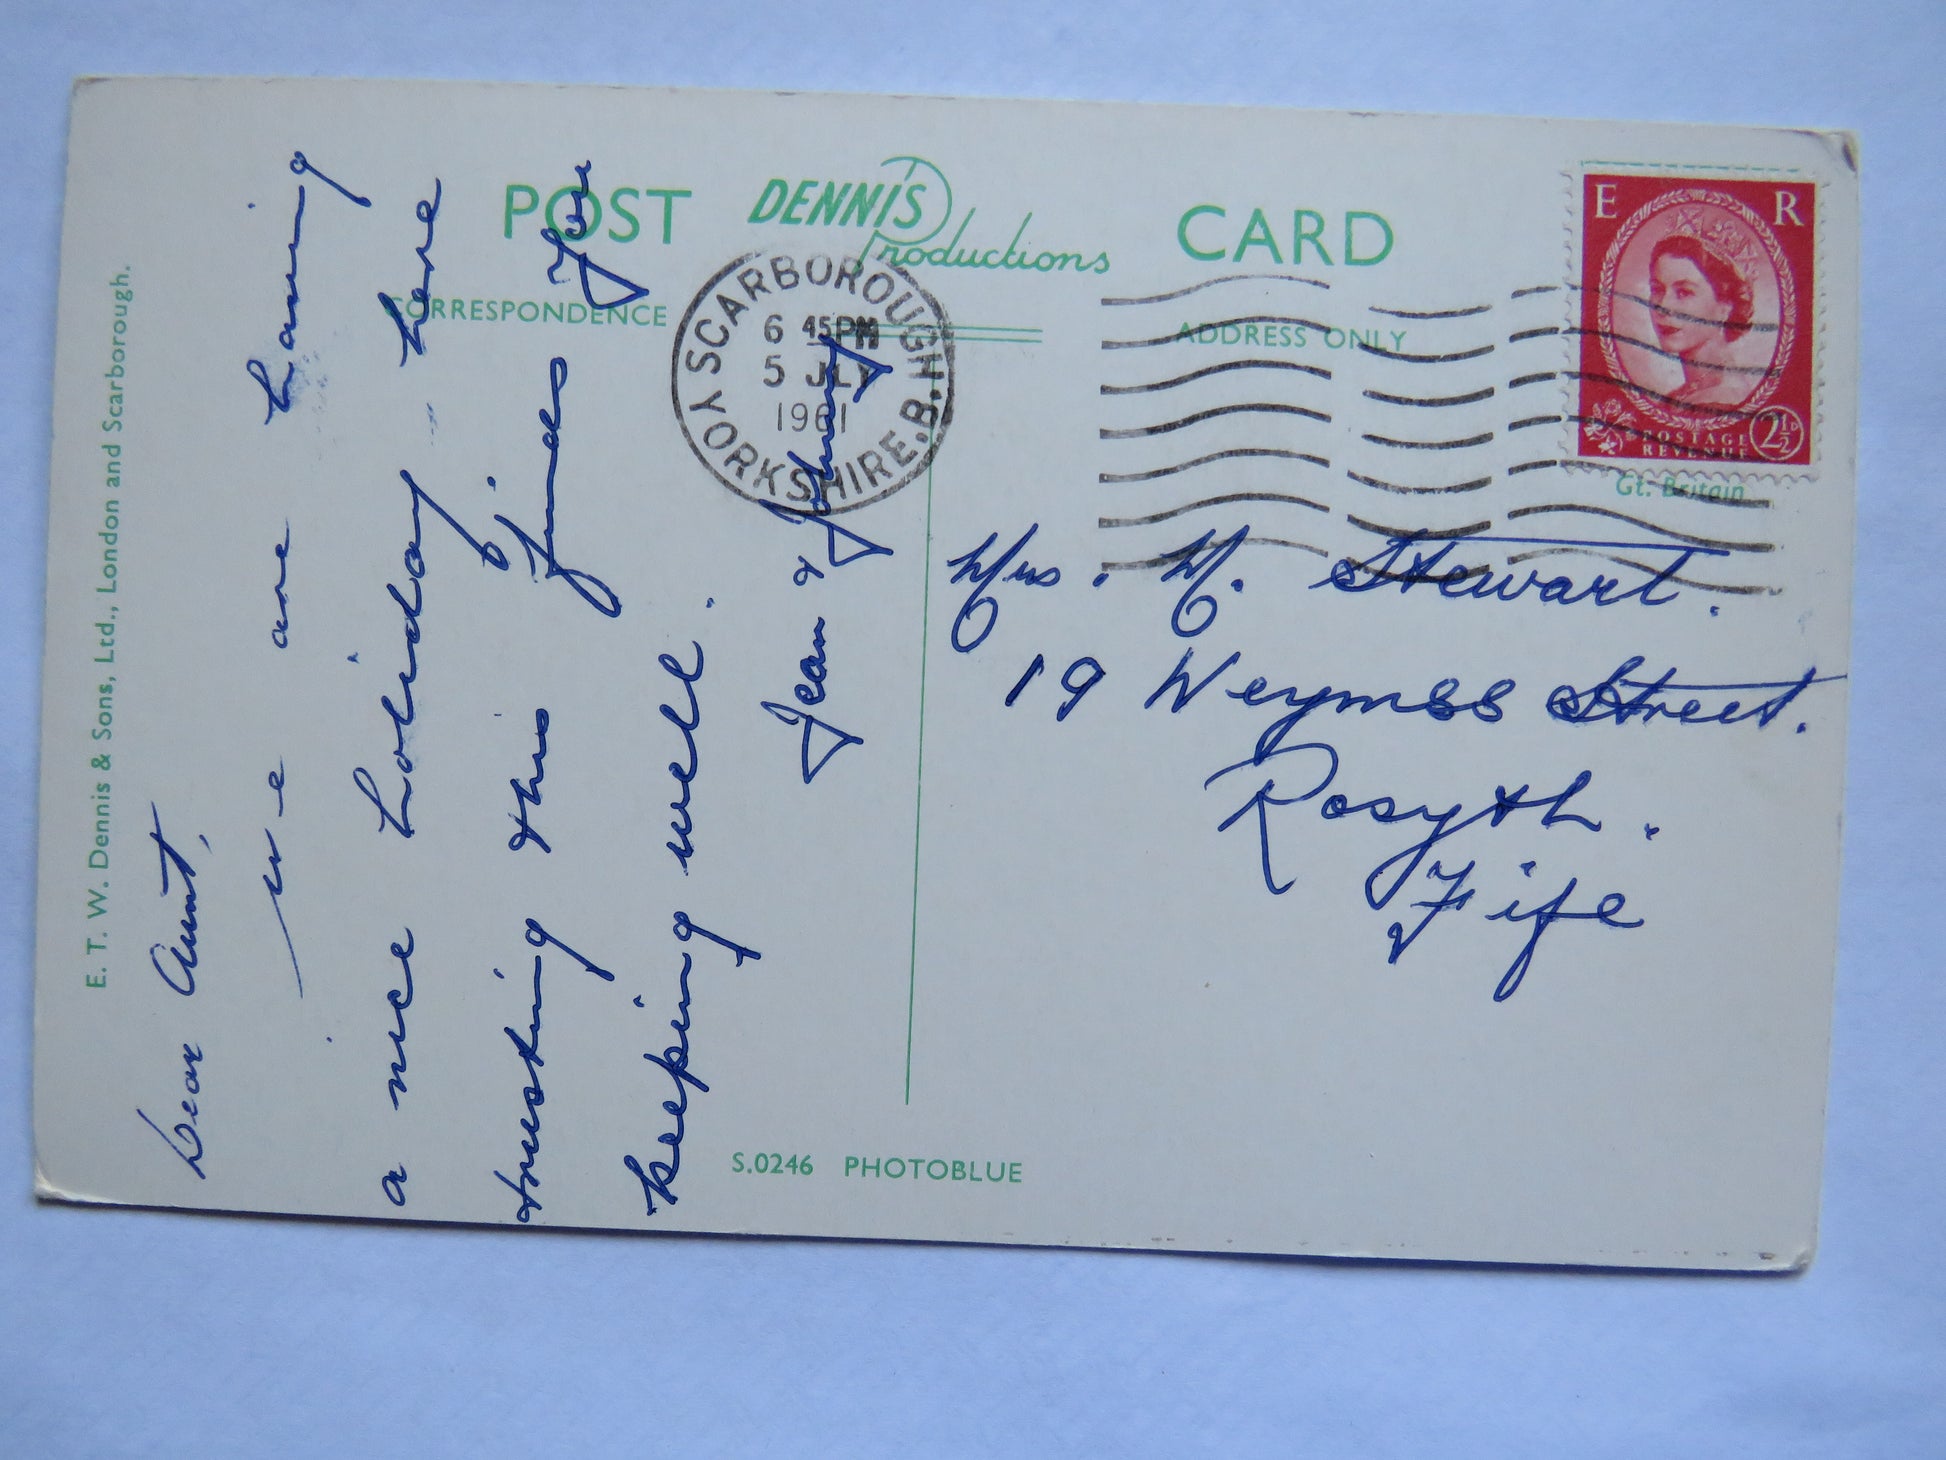 E. T. W. Dennis & Sons, Ltd., London and Scarborough.
POST DENNIS Productions CARD
CORRESPONDENCE
ADDRESS ONLY
SCARBOROUGH.B.
6 45 PM
5 JLY
1961
YORKSHIRE
E R
POSTAGE
REVENUE
2½D
Gt. Britain
Dear Aunt,
we are having
a nice holiday here
trusting this finds you
keeping well.
Jean & Johnny
Mrs. M. Stewart.
19 Weymss Street.
Rosyth.
Fife
S.0246 PHOTOBLUE